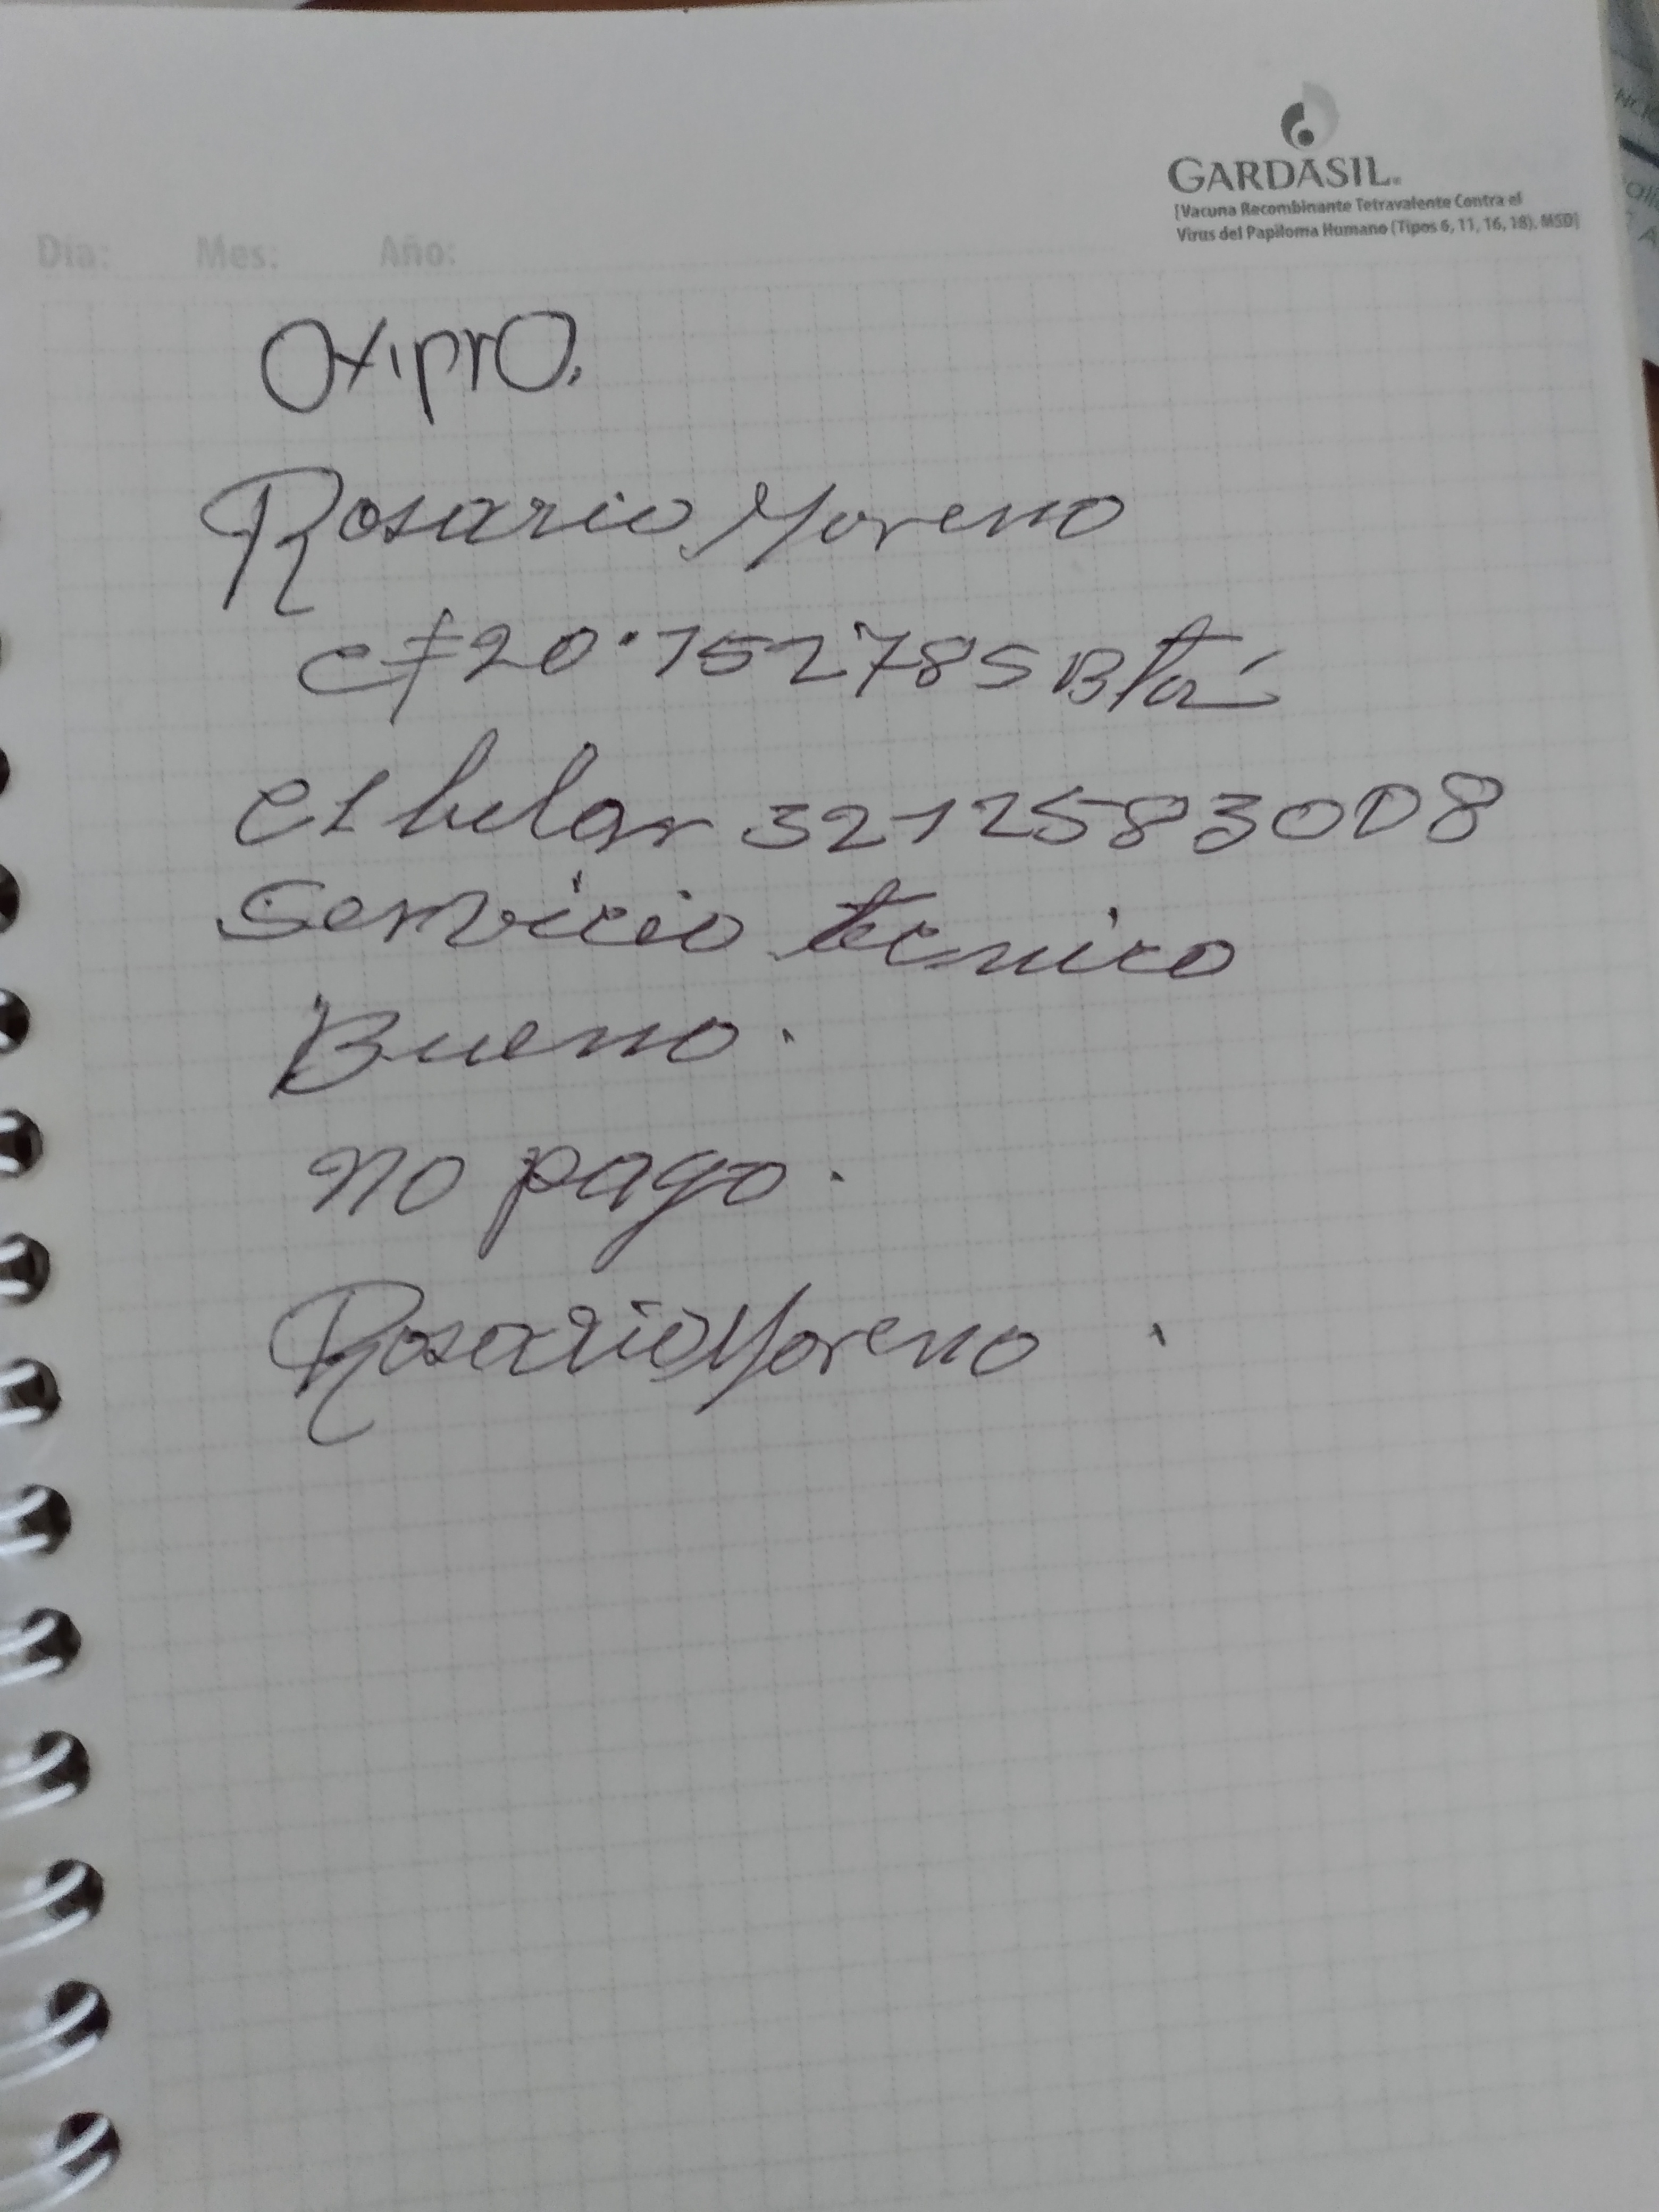 GARDASIL®
[Vacuna Recombinante Tetravalente Contra el
Virus del Papiloma Humano (Tipos 6, 11, 16, 18), MSD]
Día: Mes: Año:
Oxipro.
Rosario Moreno
c≠20.152785 Btá
celular 3212583008
Servicio técnico
Bueno.
no pago.
Rosario Moreno